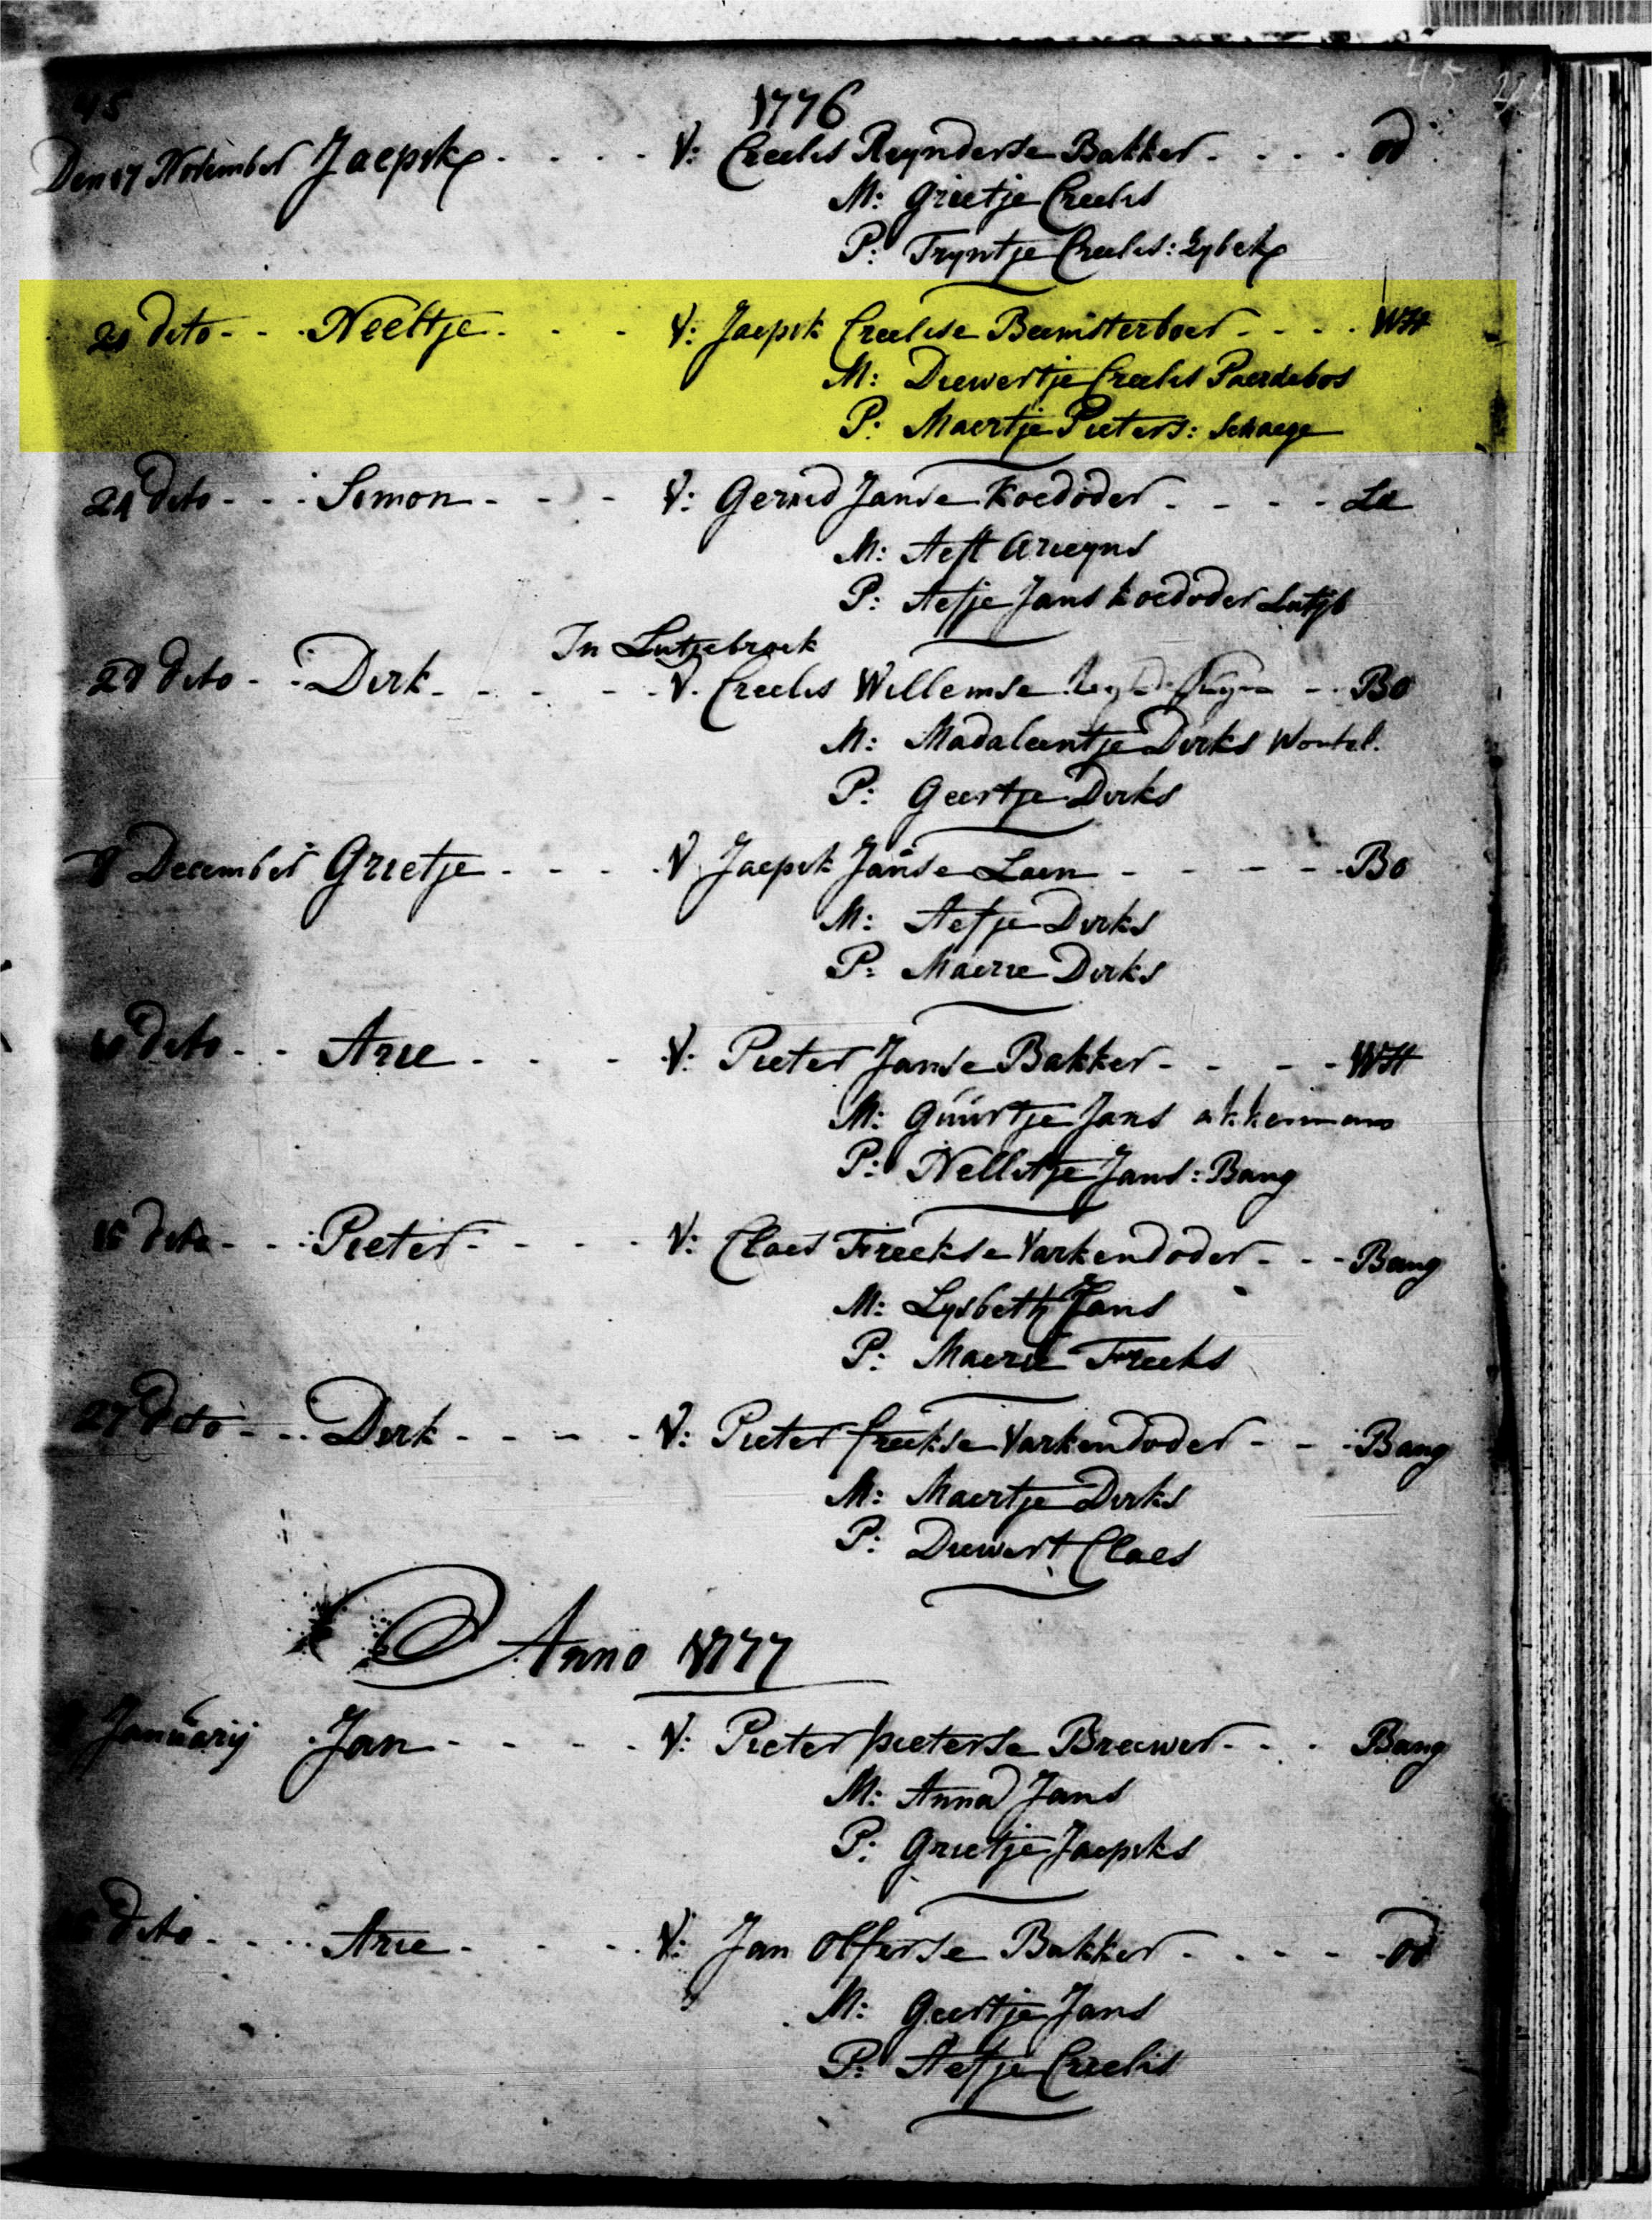 45
1776
Den 17 November Jaepik V: Creelis Reynderse Bakker od
M: Grietje Creelis
P: Tryntje Creelis: Sybek
dito Neeltje V: Jaepik Creelise Beemsterboer WH
M: Diewertje Creelis Paerdebos
P: Maertje Pieters: Schaege
21 dito Simon V: Gerred Janse Koedoder Lu
M: Aeft Arieyns
P: Aefje Jans Koedoder Lutjb
In Lutjebroek
28 dito Dirk V. Creelis Willemse Bo
M: Madaleentje Dirks Wortel.
P: Geertje Dirks
8 December Grietje V Jaepik Janse Laen Bo
M: Aefje Dirks
P: Maerie Dirks
dito Arie V: Pieter Janse Bakker WH
M: Guurtje Jans akkerman
P: Nellitje Jans: Bang
15 dito Pieter V: Claes Freekse Varkendoder Bang
M: Lysbeth Jans
P: Maerie Freeks
27 dito Dirk V: Pieter freekse Varkendoder Bang
M: Maertje Dirks
P: Diewert Claes
Anno 1777
Januarij Jan V: Pieter pieterse Breewer Bang
M: Anna Jans
P: Grietje Jaepiks
dito Arie V: Jan Olferse Bakker od
M: Geertje Jans
P: Aefje Creelis